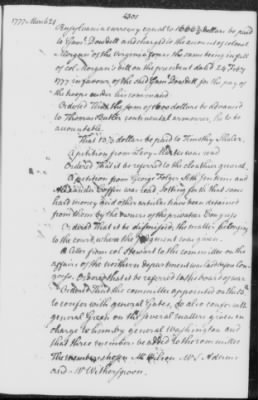 1777 March 24
Pensylvania currency equal to dollars be paid
to Saml. Dowdell and charged to the account of colonel
Morgan of the Virginia forces the same being in full
of col. Morgan's dft on the president dated 24 Feby
1777 in favour of the said Saml. Dowdell for the pay of
the troops under his command.
Ordered That the sum of dollars be advanced
to Thomas Butler continental armourer, he to be
accountable.
That dollars be paid to Timothy
A petition from Levy was read
Ordered That it be referred to the cloathier general.
A petition from George Folger Seth Jenkins and
Alexander Coffin was read setting forth that some
hard money and other articles have been detained
from them by the owners of the privateer Congress
Ordered That it be dismissed, the matter belonging
to the court, where the judgment was given.
A letter from col. Stewart to the committee on the
affairs of the northern department was laid before Con-
gress. Ordered that it be referred to the board of war.
Ordered That the committee appointed on the
to confer with general Gates, do also confer with
general Green on the several matters given in
charge to him by general Washington and
that three members be added to the committee.
The members chosen Mr Wilson Mr S. Adams
and Mr Witherspoon.